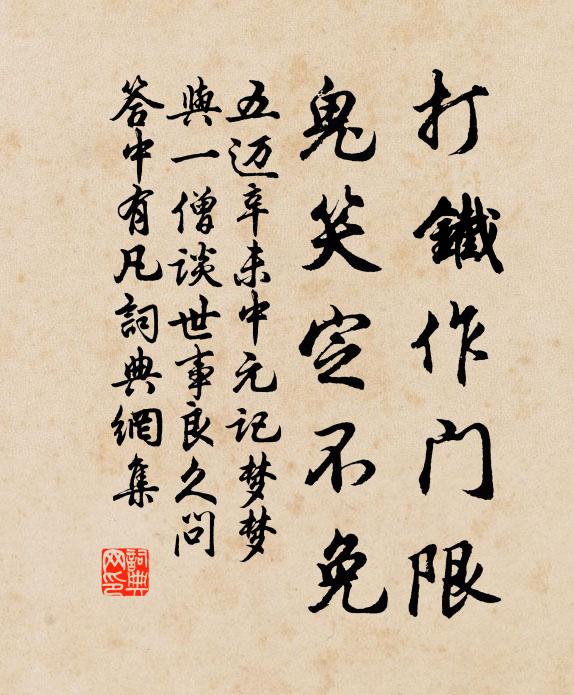 打鐵作門限
鬼笑定不免
五迈辛未中元记梦梦
與一僧談世事良久問
答中有凡詞典網集
詞典网印